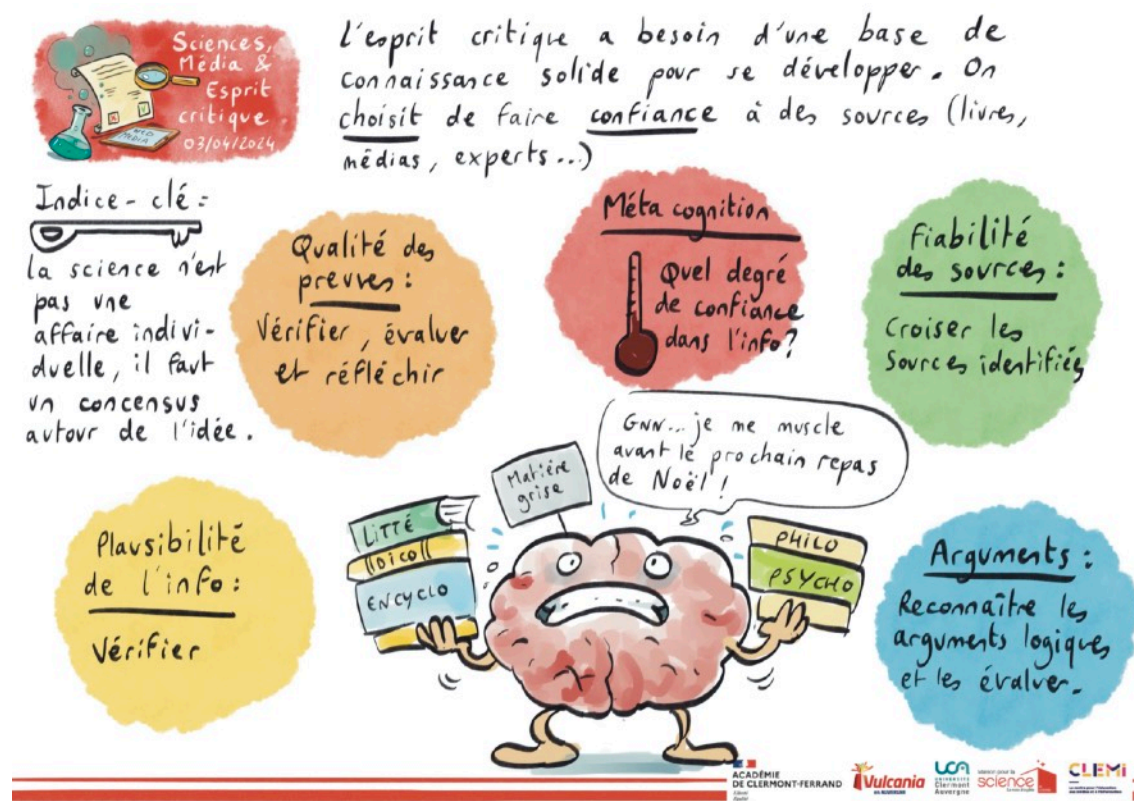 Sciences,
Média &
Esprit
critique
03/04/2024
L'esprit critique a besoin d'une base de
connaissance solide pour se développer. On
choisit de faire confiance à des sources (livres,
médias, experts...)
Indice-clé :
la science n'est
pas une
affaire indivi-
duelle, il faut
un concensus
autour de l'idée.
Qualité des
preuves :
Vérifier, évaluer
et réfléchir
Méta cognition
Quel degré
de confiance
dans l'info?
Fiabilité
des sources :
Croiser les
sources identifiés
Plausibilité
de l'info :
Vérifier
Matière
grise
GNN... je me muscle
avant le prochain repas
de Noël !
LITTÉ
DICO
ENCYCLO
PHILO
PSYCHO
Arguments :
Reconnaître les
arguments logiques
et les évaluer.
ACADÉMIE
DE CLERMONT-FERRAND
Vulcania
EN AUVERGNE
UCA
UNIVERSITÉ
Clermont
Auvergne
maison pour la
science
CLEMI